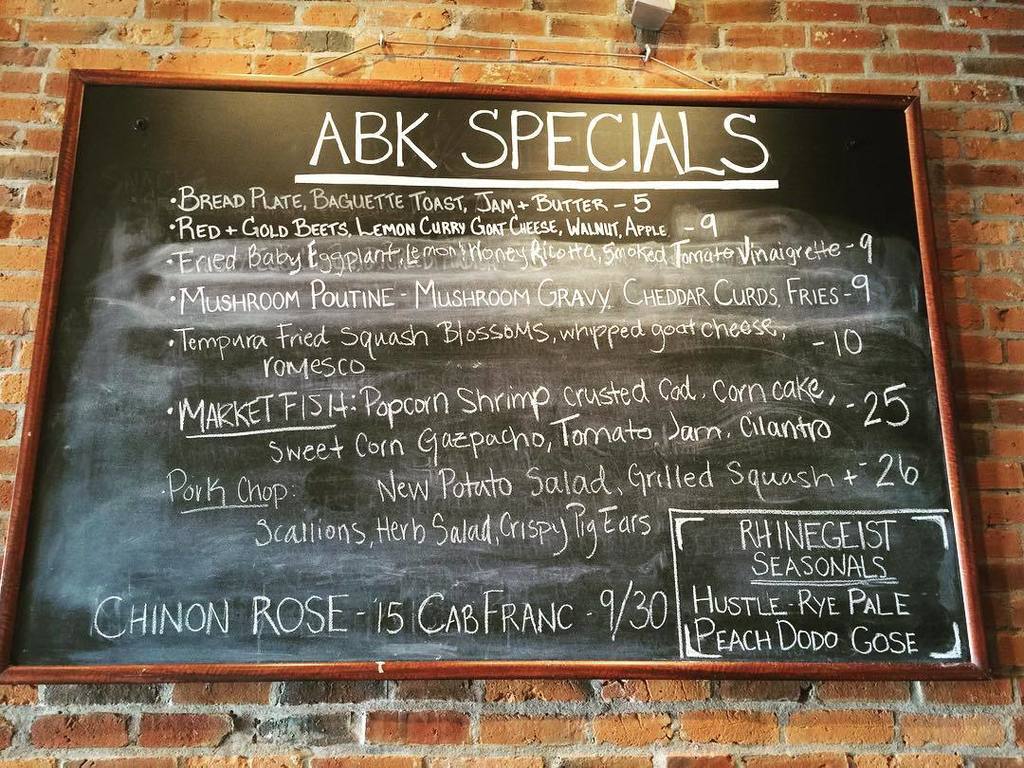 ABK SPECIALS
• BREAD PLATE, BAGUETTE TOAST, JAM + BUTTER - 5
• RED + GOLD BEETS, LEMON CURRY GOAT CHEESE, WALNUT, APPLE - 9
• Fried Baby Eggplant, Lemon Honey Ricotta, Smoked Tomato Vinaigrette - 9
• MUSHROOM POUTINE - MUSHROOM GRAVY, CHEDDAR CURDS, FRIES - 9
• Tempura Fried Squash Blossoms, whipped goat cheese, - 10
romesco
• MARKET FISH: Popcorn Shrimp crusted Cod, Corn cake, - 25
Sweet Corn Gazpacho, Tomato Jam, Cilantro
• Pork Chop: New Potato Salad, Grilled Squash + - 26
Scallions, Herb Salad, Crispy Pig Ears
CHINON ROSE - '15 CAB FRANC - 9/30
RHINEGEIST
SEASONALS
HUSTLE - RYE PALE
PEACH DODO GOSE